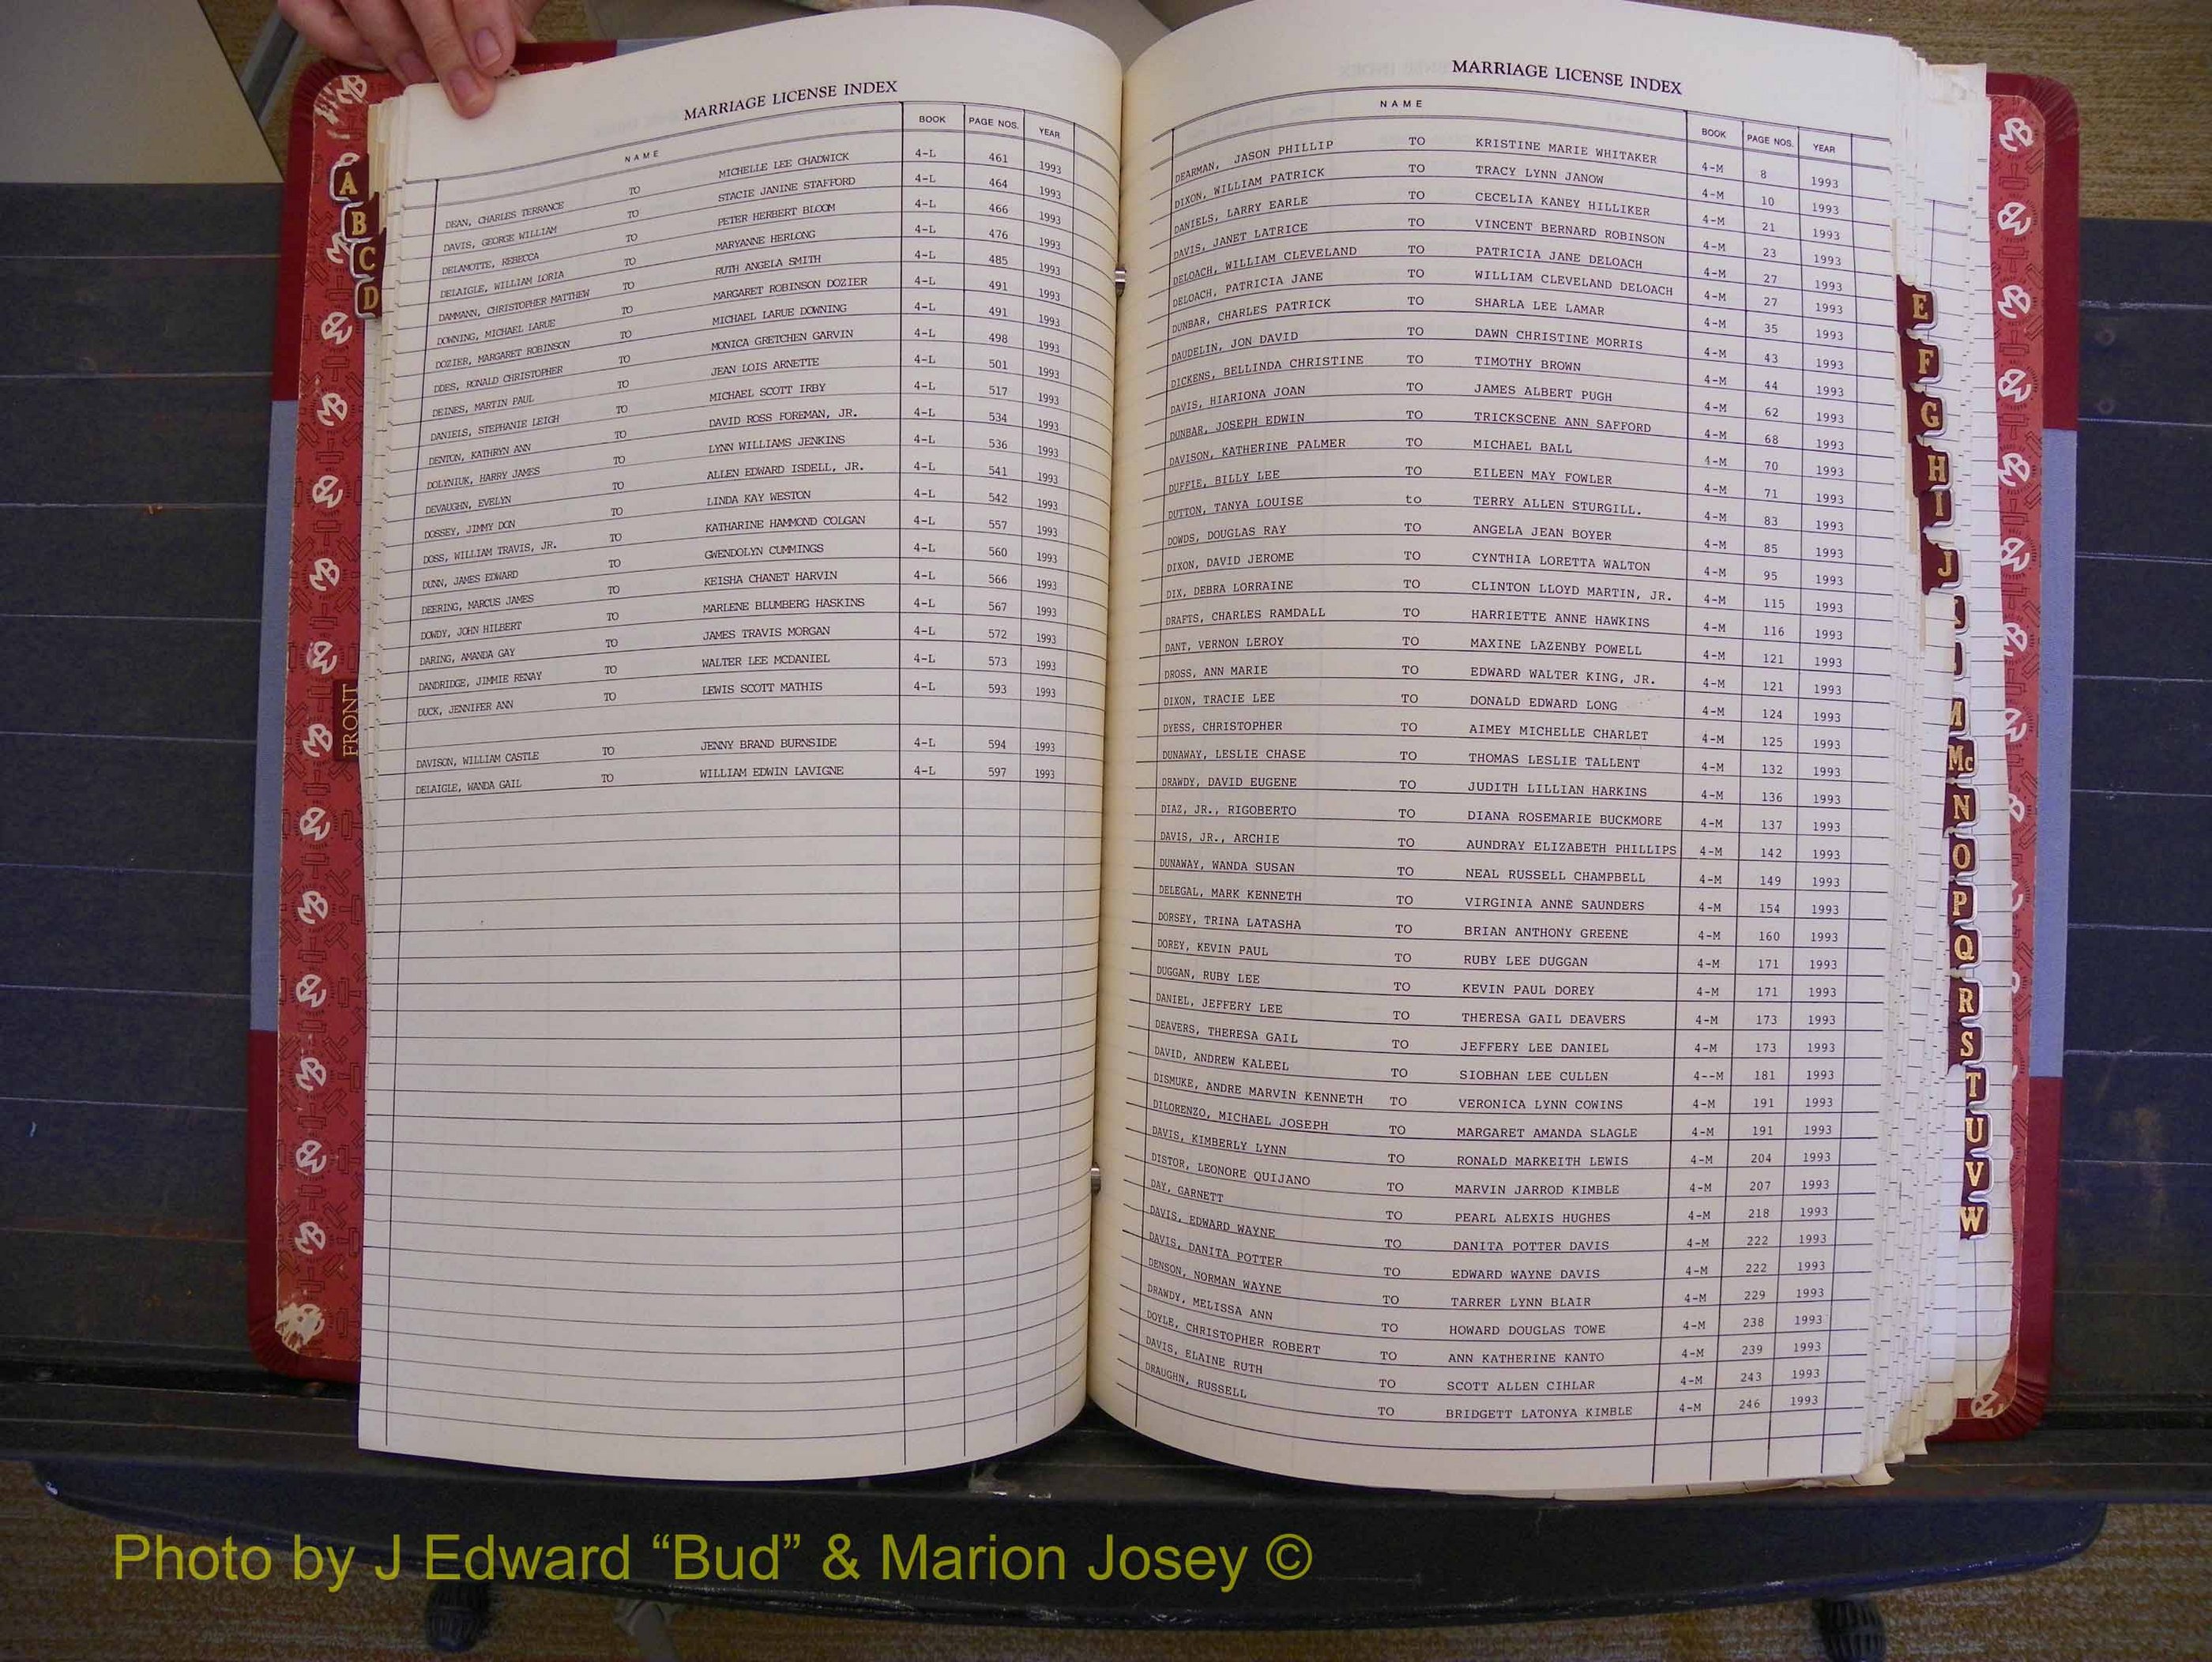 MARRIAGE LICENSE INDEX
NAME BOOK PAGE NOS. YEAR
DEAN, CHARLES TERRANCE TO MICHELLE LEE CHADWICK 4-L 461 1993
DAVIS, GEORGE WILLIAM TO STACIE JANINE STAFFORD 4-L 464 1993
DELAMOTTE, REBECCA TO PETER HERBERT BLOOM 4-L 466 1993
DELAIGLE, WILLIAM LORIA TO MARYANNE HERLONG 4-L 476 1993
DAMMANN, CHRISTOPHER MATTHEW TO RUTH ANGELA SMITH 4-L 485 1993
DOWNING, MICHAEL LARUE TO MARGARET ROBINSON DOZIER 4-L 491 1993
DOZIER, MARGARET ROBINSON TO MICHAEL LARUE DOWNING 4-L 491 1993
DDES, RONALD CHRISTOPHER TO MONICA GRETCHEN GARVIN 4-L 498 1993
DEINES, MARTIN PAUL TO JEAN LOIS ARNETTE 4-L 501 1993
DANIELS, STEPHANIE LEIGH TO MICHAEL SCOTT IRBY 4-L 517 1993
DENTON, KATHRYN ANN TO DAVID ROSS FOREMAN, JR. 4-L 534 1993
DOLYNIUK, HARRY JAMES TO LYNN WILLIAMS JENKINS 4-L 536 1993
DEVAUGHN, EVELYN TO ALLEN EDWARD ISDELL, JR. 4-L 541 1993
DOSSEY, JIMMY DON TO LINDA KAY WESTON 4-L 542 1993
DOSS, WILLIAM TRAVIS, JR. TO KATHARINE HAMMOND COLGAN 4-L 557 1993
DUNN, JAMES EDWARD TO GWENDOLYN CUMMINGS 4-L 560 1993
DEERING, MARCUS JAMES TO KEISHA CHANET HARVIN 4-L 566 1993
DOWDY, JOHN HILBERT TO MARLENE BLUMBERG HASKINS 4-L 567 1993
DARING, AMANDA GAY TO JAMES TRAVIS MORGAN 4-L 572 1993
DANDRIDGE, JIMMIE RENAY TO WALTER LEE MCDANIEL 4-L 573 1993
DUCK, JENNIFER ANN TO LEWIS SCOTT MATHIS 4-L 593 1993
DAVISON, WILLIAM CASTLE TO JENNY BRAND BURNSIDE 4-L 594 1993
DELAIGLE, WANDA GAIL TO WILLIAM EDWIN LAVIGNE 4-L 597 1993
A
B
C
D
FRONT
MARRIAGE LICENSE INDEX
NAME BOOK PAGE NOS. YEAR
DEARMAN, JASON PHILLIP TO KRISTINE MARIE WHITAKER 4-M 8 1993
DIXON, WILLIAM PATRICK TO TRACY LYNN JANOW 4-M 10 1993
DANIELS, LARRY EARLE TO CECELIA KANEY HILLIKER 4-M 21 1993
DAVIS, JANET LATRICE TO VINCENT BERNARD ROBINSON 4-M 23 1993
DELOACH, WILLIAM CLEVELAND TO PATRICIA JANE DELOACH 4-M 27 1993
DELOACH, PATRICIA JANE TO WILLIAM CLEVELAND DELOACH 4-M 27 1993
DUNBAR, CHARLES PATRICK TO SHARLA LEE LAMAR 4-M 35 1993
DAUDELIN, JON DAVID TO DAWN CHRISTINE MORRIS 4-M 43 1993
DICKENS, BELLINDA CHRISTINE TO TIMOTHY BROWN 4-M 44 1993
DAVIS, HIARIONA JOAN TO JAMES ALBERT PUGH 4-M 62 1993
DUNBAR, JOSEPH EDWIN TO TRICKSCENE ANN SAFFORD 4-M 68 1993
DAVISON, KATHERINE PALMER TO MICHAEL BALL 4-M 70 1993
DUFFIE, BILLY LEE TO EILEEN MAY FOWLER 4-M 71 1993
DUTTON, TANYA LOUISE to TERRY ALLEN STURGILL. 4-M 83 1993
DOWDS, DOUGLAS RAY TO ANGELA JEAN BOYER 4-M 85 1993
DIXON, DAVID JEROME TO CYNTHIA LORETTA WALTON 4-M 95 1993
DIX, DEBRA LORRAINE TO CLINTON LLOYD MARTIN, JR. 4-M 115 1993
DRAFTS, CHARLES RAMDALL TO HARRIETTE ANNE HAWKINS 4-M 116 1993
DANT, VERNON LEROY TO MAXINE LAZENBY POWELL 4-M 121 1993
DROSS, ANN MARIE TO EDWARD WALTER KING, JR. 4-M 121 1993
DIXON, TRACIE LEE TO DONALD EDWARD LONG 4-M 124 1993
DYESS, CHRISTOPHER TO AIMEY MICHELLE CHARLET 4-M 125 1993
DUNAWAY, LESLIE CHASE TO THOMAS LESLIE TALLENT 4-M 132 1993
DRAWDY, DAVID EUGENE TO JUDITH LILLIAN HARKINS 4-M 136 1993
DIAZ, JR., RIGOBERTO TO DIANA ROSEMARIE BUCKMORE 4-M 137 1993
DAVIS, JR., ARCHIE TO AUNDRAY ELIZABETH PHILLIPS 4-M 142 1993
DUNAWAY, WANDA SUSAN TO NEAL RUSSELL CHAMPBELL 4-M 149 1993
DELEGAL, MARK KENNETH TO VIRGINIA ANNE SAUNDERS 4-M 154 1993
DORSEY, TRINA LATASHA TO BRIAN ANTHONY GREENE 4-M 160 1993
DOREY, KEVIN PAUL TO RUBY LEE DUGGAN 4-M 171 1993
DUGGAN, RUBY LEE TO KEVIN PAUL DOREY 4-M 171 1993
DANIEL, JEFFERY LEE TO THERESA GAIL DEAVERS 4-M 173 1993
DEAVERS, THERESA GAIL TO JEFFERY LEE DANIEL 4-M 173 1993
DAVID, ANDREW KALEEL TO SIOBHAN LEE CULLEN 4--M 181 1993
DISMUKE, ANDRE MARVIN KENNETH TO VERONICA LYNN COWINS 4-M 191 1993
DILORENZO, MICHAEL JOSEPH TO MARGARET AMANDA SLAGLE 4-M 191 1993
DAVIS, KIMBERLY LYNN TO RONALD MARKEITH LEWIS 4-M 204 1993
DISTOR, LEONORE QUIJANO TO MARVIN JARROD KIMBLE 4-M 207 1993
DAY, GARNETT TO PEARL ALEXIS HUGHES 4-M 218 1993
DAVIS, EDWARD WAYNE TO DANITA POTTER DAVIS 4-M 222 1993
DAVIS, DANITA POTTER TO EDWARD WAYNE DAVIS 4-M 222 1993
DENSON, NORMAN WAYNE TO TARRER LYNN BLAIR 4-M 229 1993
DRAWDY, MELISSA ANN TO HOWARD DOUGLAS TOWE 4-M 238 1993
DOYLE, CHRISTOPHER ROBERT TO ANN KATHERINE KANTO 4-M 239 1993
DAVIS, ELAINE RUTH TO SCOTT ALLEN CIHLAR 4-M 243 1993
DRAUGHN, RUSSELL TO BRIDGETT LATONYA KIMBLE 4-M 246 1993
E
F
G
H
I
J
M
Mc
N
O
P
Q
R
S
T
U
V
W
Photo by J Edward “Bud” & Marion Josey ©